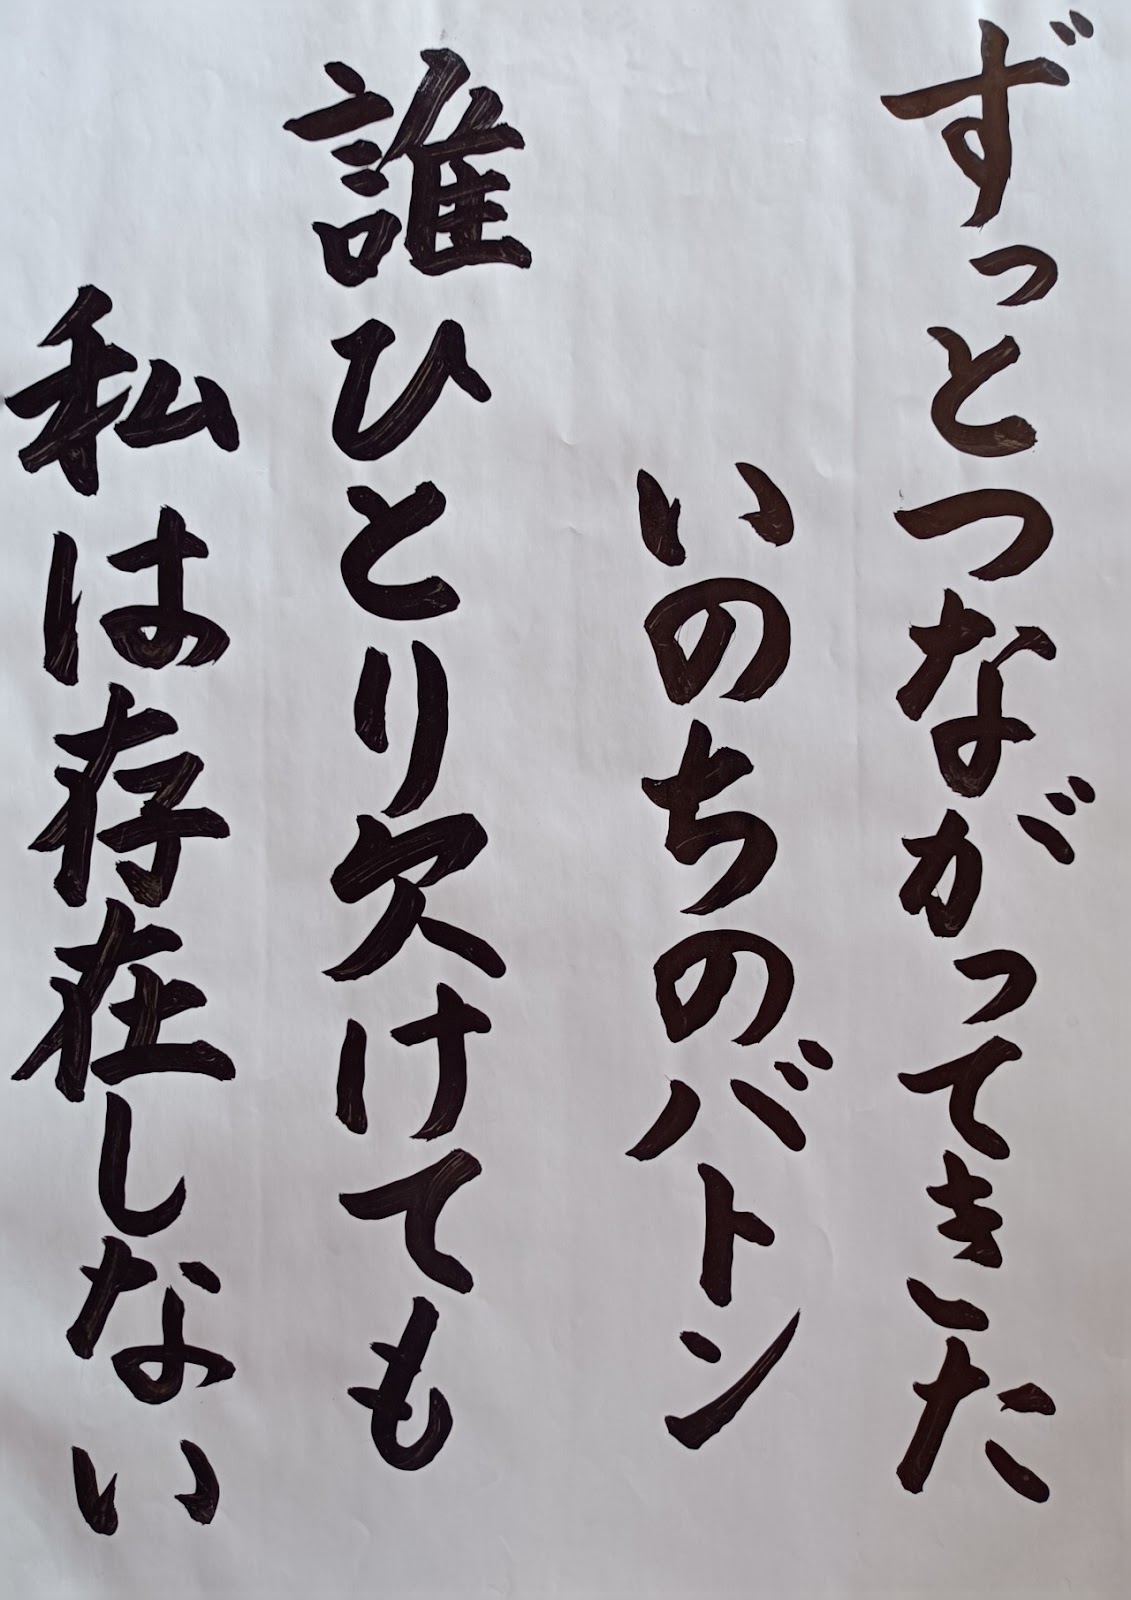 ずっとつながってきた
いのちのバトン
誰ひとり欠けても
私は存在しない